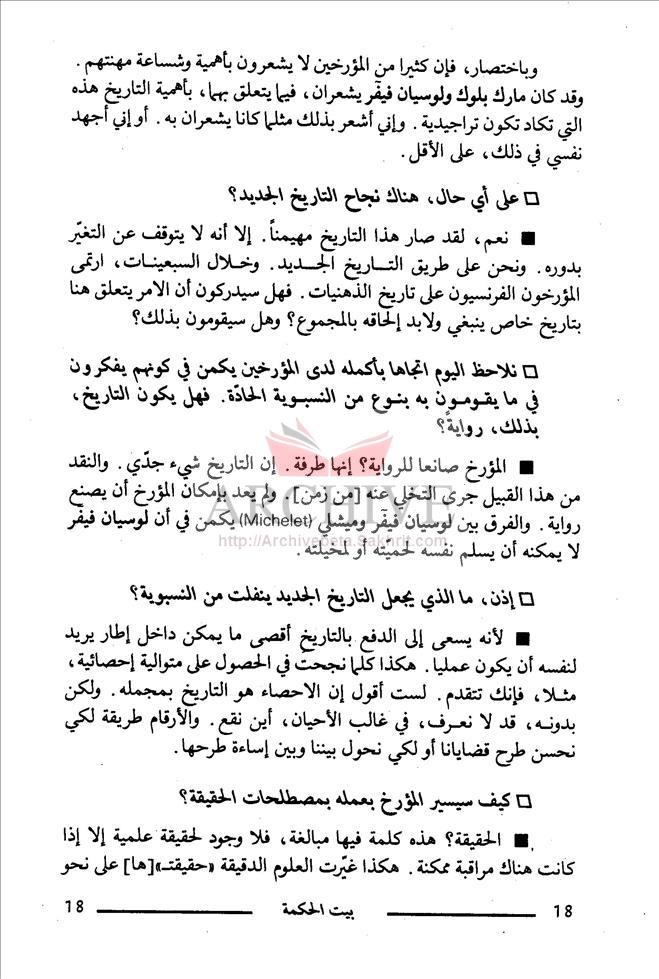 وباختصار، فإن كثيرا من المؤرخين لا يشعرون بأهمية وشساعة مهنتهم .
وقد كان مارك بلوك ولوسيان فيڤر يشعران، فيما يتعلق بهما، بأهمية التاريخ هذه
التي تكاد تكون تراجيدية . وإني أشعر بذلك مثلما كانا يشعران به . أو إني أجهد
نفسي في ذلك، على الأقل .
□ على أي حال، هناك نجاح التاريخ الجديد؟
■ نعم، لقد صار هذا التاريخ مهيمناً . إلا أنه لا يتوقف عن التغيّر
بدوره . ونحن على طريق التـاريخ الجـديد . وخـلال السبعينـات، ارتمى
المؤرخون الفرنسيون على تاريخ الذهنيات . فهل سيدركون أن الامر يتعلق هنا
بتاريخ خاص ينبغي ولابد إلحاقه بالمجموع؟ وهل سيقومون بذلك؟
□ نلاحظ اليوم اتجاها بأكمله لدى المؤرخين يكمن في كونهم يفكرون
في ما يقومـون به بنـوع من النسبوية الحادّة . فهل يكون التاريخ،
بذلك، رواية؟
■ المؤرخ صانعا للرواية؟ إنها طرفة . إن التاريخ شيء جدّي . والنقد
من هذا القبيل جرى التخلي عنه [من زمن] . ولم يعد بإمكان المؤرخ أن يصنع
ARCHIVE
رواية . والفرق بين لوسيان فيڤر وميشلي (Michelet) يكمن في أن لوسيان فيڤر
http://Archivebeta.Sakhrit.com
لا يمكنه أن يسلم نفسه لحميّته أو لمخيّلته .
□ إذن، ما الذي يجعل التاريخ الجديد ينفلت من النسبوية؟
■ لأنه يسعى إلى الدفع بالتاريخ أقصى ما يمكن داخل إطار يريد
لنفسه أن يكون عمليا . هكذا كلما نجحت في الحصول على متوالية إحصائية،
مثـلا، فإنك تتقدم . لست أقول إن الاحصاء هو التاريخ بمجمله . ولكن
بدونـه، قد لا نعـرف، في غالب الأحيان، أين نقع . والأرقام طريقة لكي
نحسن طرح قضايانا أو لكي نحول بيننا وبين إساءة طرحها .
□ كيف سيسير المؤرخ بعمله بمصطلحات الحقيقة؟
■ الحقيقة؟ هذه كلمة فيها مبالغة، فلا وجود لحقيقة علمية إلا إذا
كانت هناك مراقبة ممكنة . هكذا غيّرت العلوم الدقيقة «حقيقتـ»[ها] على نحو
18 بيت الحكمة 18